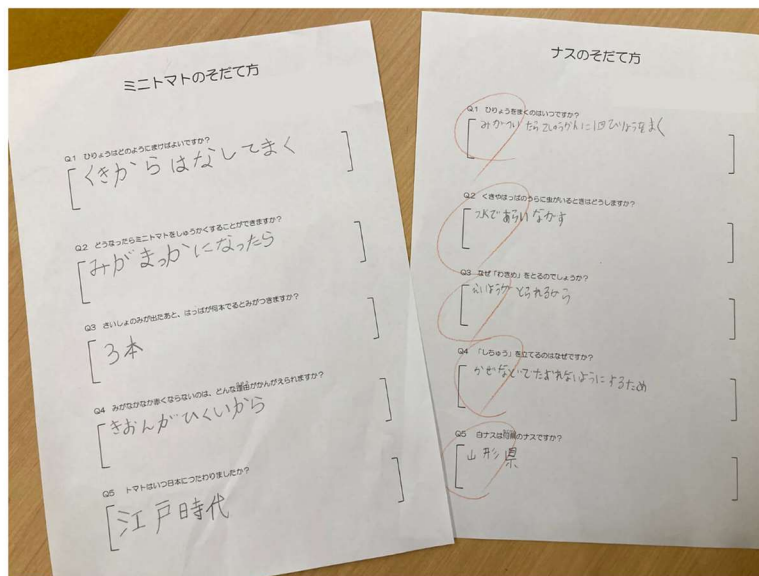 ミニトマトのそだて方
Q.1 ひりょうはどのようにまけばよいですか?
くきからはなしてまく
Q.2 どうなったらミニトマトをしゅうかくすることができますか?
みがまっかになったら
Q3 さいしょのみが出たあと、はっぱが何本でるとみがつきますか?
3本
Q4 みがなかなか赤くならないのは、どんな理由がかんがえられますか?
きおんがひくいから
Q5 トマトはいつ日本につたわりましたか?
江戸時代
ナスのそだて方
Q.1 ひりょうをまくのはいつですか?
みがついたら に1回ひりょうをまく
Q.2 くきやはっぱのうらに虫がいるときはどうしますか?
水であらいながす
Q3 なぜ「わきめ」をとるのでしょうか?
とられるから
Q4 「しちゅう」を立てるのはなぜですか?
かぜなどでたおれないようにするため
Q5 白ナスは何県のナスですか?
山形県